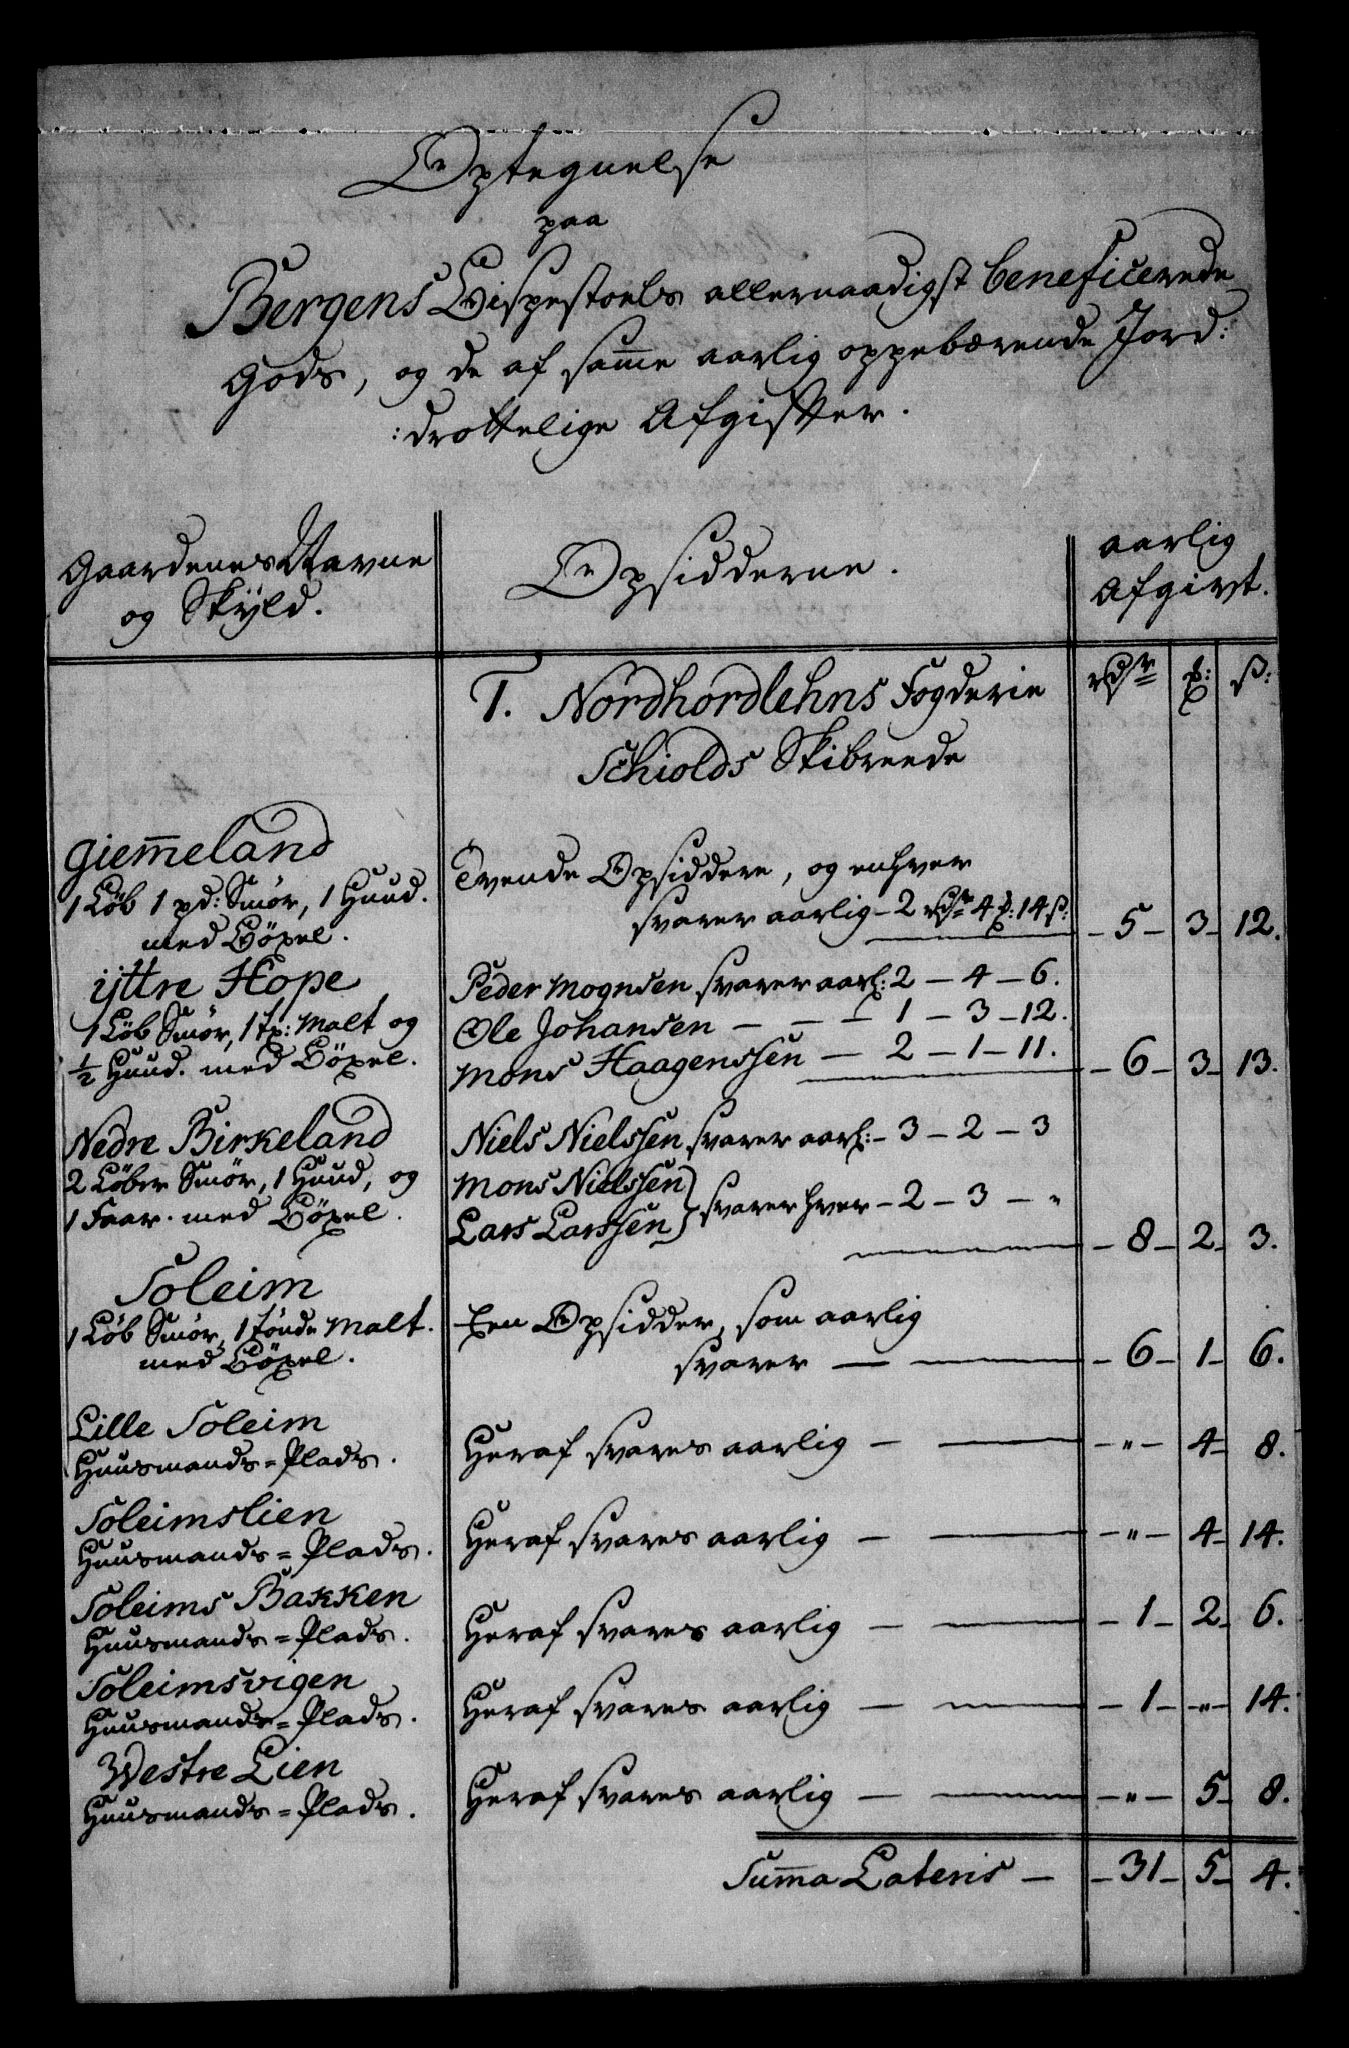 Optegnelse
paa
Bergens Bispestoels allernaadigst beneficerede
Gods, og de af sam̄e aarlig oppebærende Jord:
:drottelige Afgifter.
Gaardenes Navne
og Skÿld.
Opsidderne.
aarlig
Afgivt.
I. Nordhordlehns Fogderie
rdr
ß:
Schiolds Skibreede
Giem̄eland
1 Löb 1 pd: Smör, 1 Huud.
med Böxel.
Tvende Opsiddere, og enhver
svarer aarlig - 2 rdr 4 14 ß:
- 5 - 3 - 12.
ÿttre Hope
1 Löb Smör, 1 tn: Malt og
½ Huud. med Böxel.
Peder Mognsen svarer aarl: 2 - 4 - 6.
Ole Johansen - - - 1 - 3 - 12.
Mons Haagenssen - 2 - 1 - 11.
- 6 - 3 - 13.
Nedre Birkeland
2 Löber Smör, 1 Huud, og
1 Faar. med Böxel.
Niels Nielssen svarer aarl: - 3 - 2 - 3
Mons Nielssen
Lars Larssen } svarer hver - 2 - 3 - "
- 8 - 2 - 3.
Soleim
1 Löb Smör, 1 tönde Malt.
med Böxel.
Een Opsidder, som aarlig
svarer - - 6 - 1 - 6.
Lille Soleim
Huusmands = Plads.
Heraf svares aarlig - - " - 4 - 8.
Soleimslien
Huusmands = Plads.
Heraf svares aarlig - - " - 4 - 14.
Soleims Bakken
Huusmands = Plads.
Heraf svares aarlig - - 1 - 2 - 6.
Soleimsvigen
Huusmands = Plads.
Heraf svares aarlig - - 1 - " - 14.
Westre Lien
Huusmands = Plads.
Heraf svares aarlig - - " - 5 - 8.
Sum̄a Lateris - - 31 - 5 - 4.